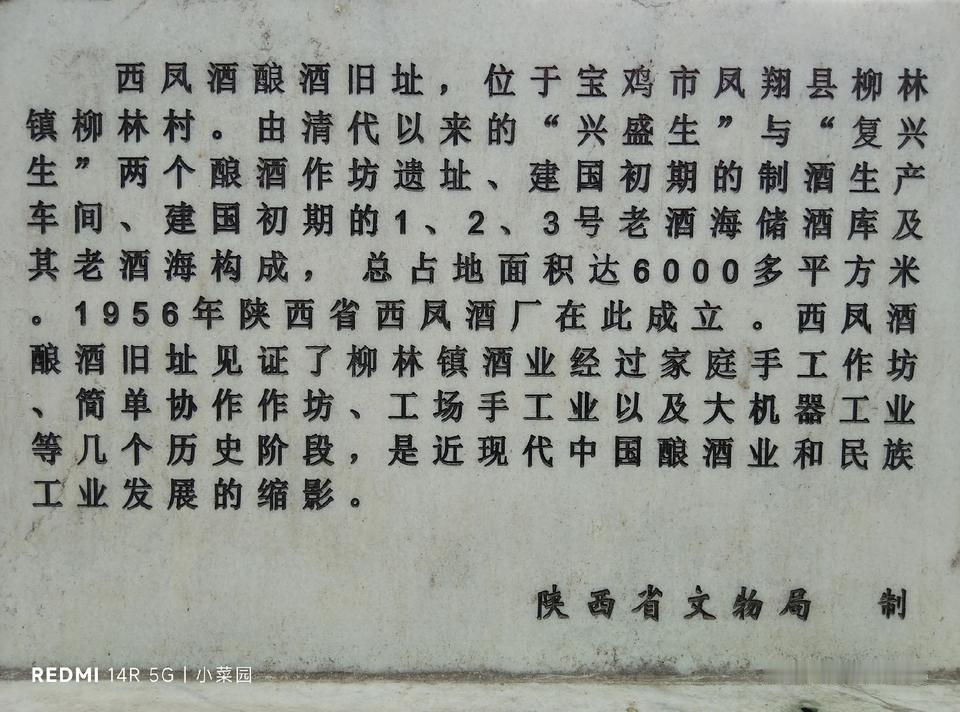 西凤酒酿酒旧址，位于宝鸡市凤翔县柳林
镇柳林村。由清代以来的“兴盛生”与“复兴
生”两个酿酒作坊遗址、建国初期的制酒生产
车间、建国初期的1、2、3号老酒海储酒库及
其老酒海构成， 总占地面积达6000多平方米
。1956年陕西省西凤酒厂在此成立 。西凤酒
酿酒旧址见证了柳林镇酒业经过家庭手工作坊
、简单协作作坊、工场手工业以及大机器工业
等几个历史阶段，是近现代中国酿酒业和民族
工业发展的缩影。
陕西省文物局 制
REDMI 14R 5G | 小菜园